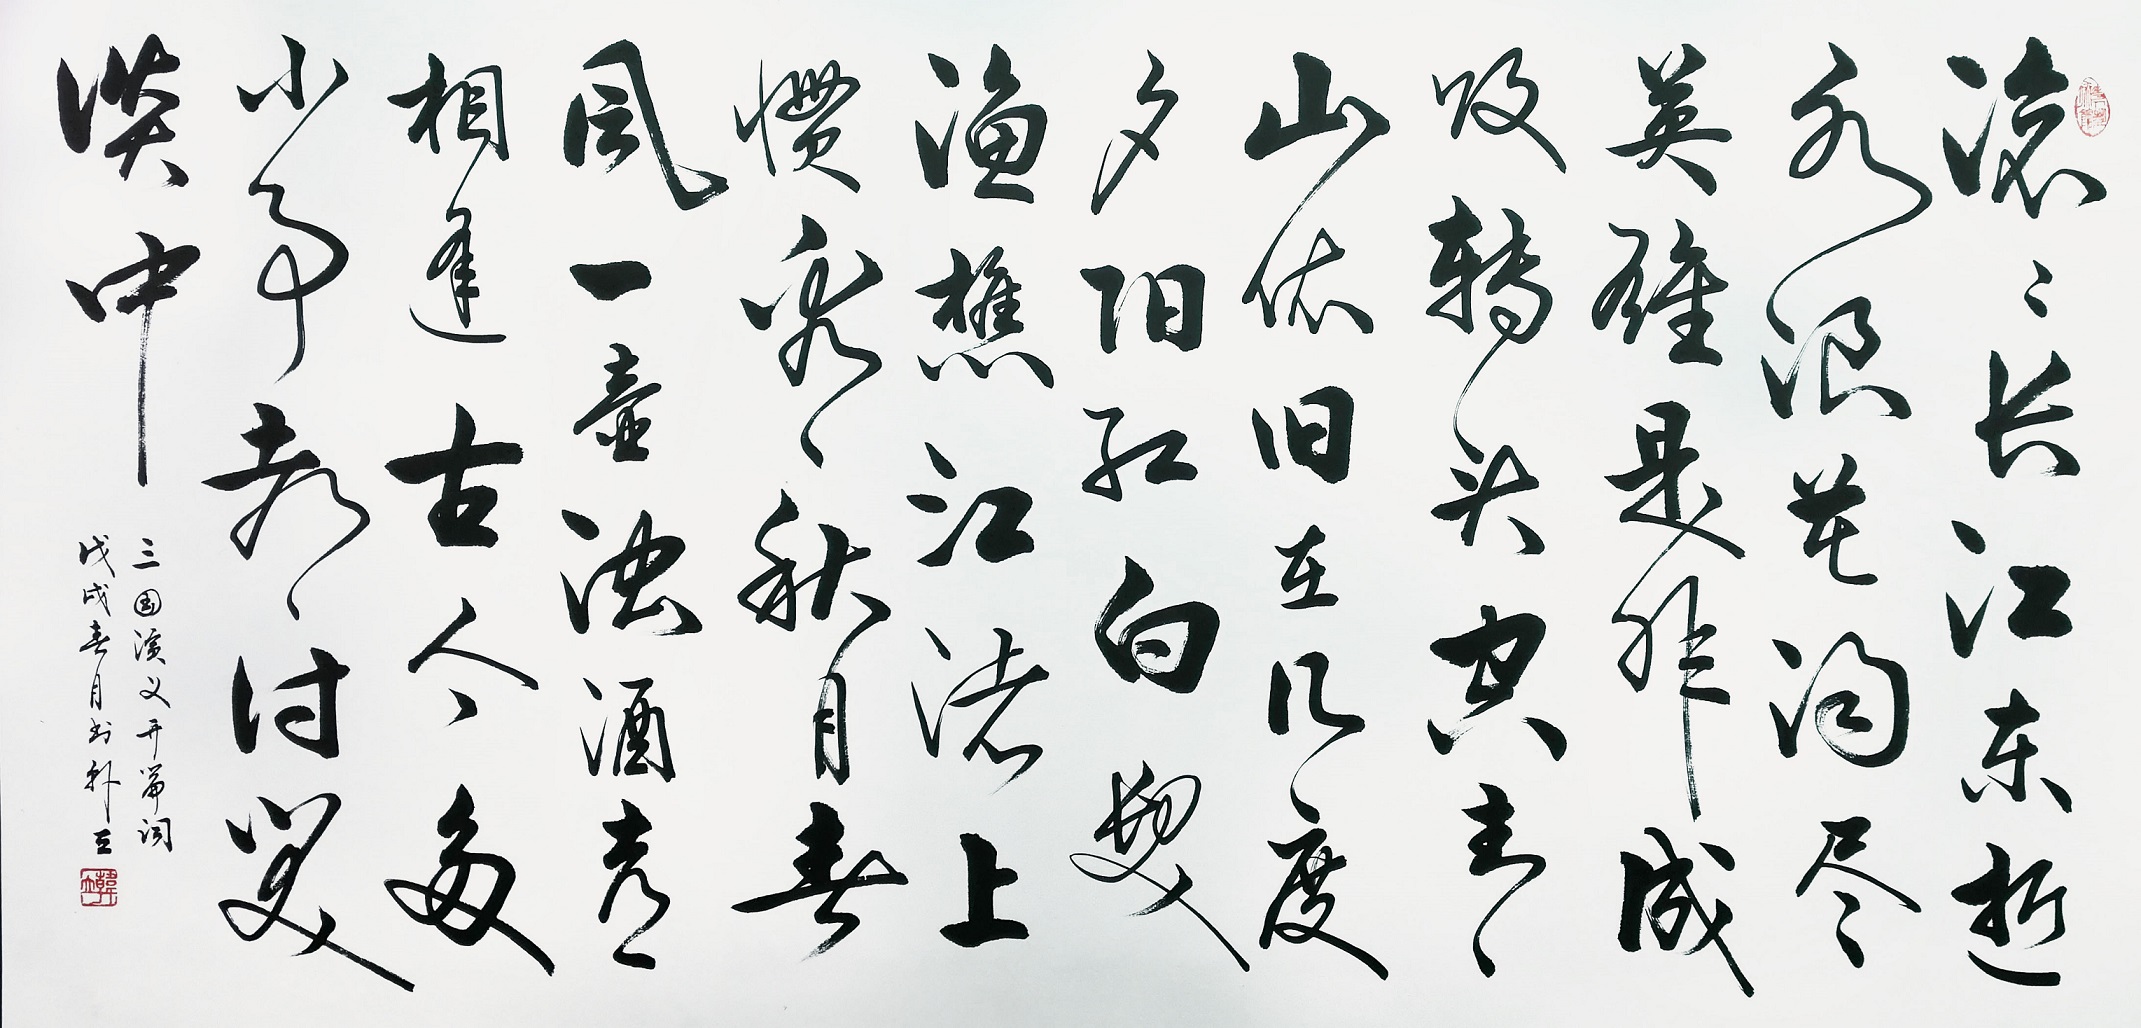 滚〻长江东逝
水浪花淘尽
英雄是非成
败转头空青
山依旧在几度
夕阳红白发
渔樵江渚上
惯看秋月春
风一壶浊酒喜
相逢古今多
少事都付笑
谈中
三国演义开篇词
戊戌春月书韩